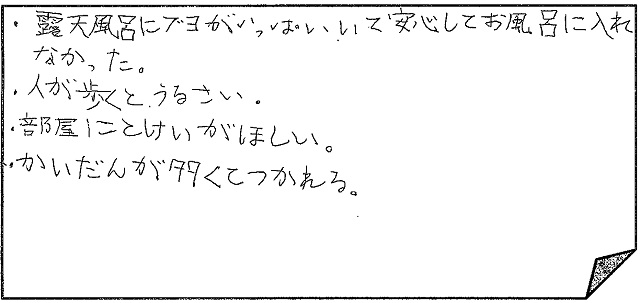 ・露天風呂にブヨがいっぱいいて安心してお風呂に入れ
なかった。
・人が歩くと、うるさい。
・部屋にとけいがほしい。
・かいだんが多くてつかれる。